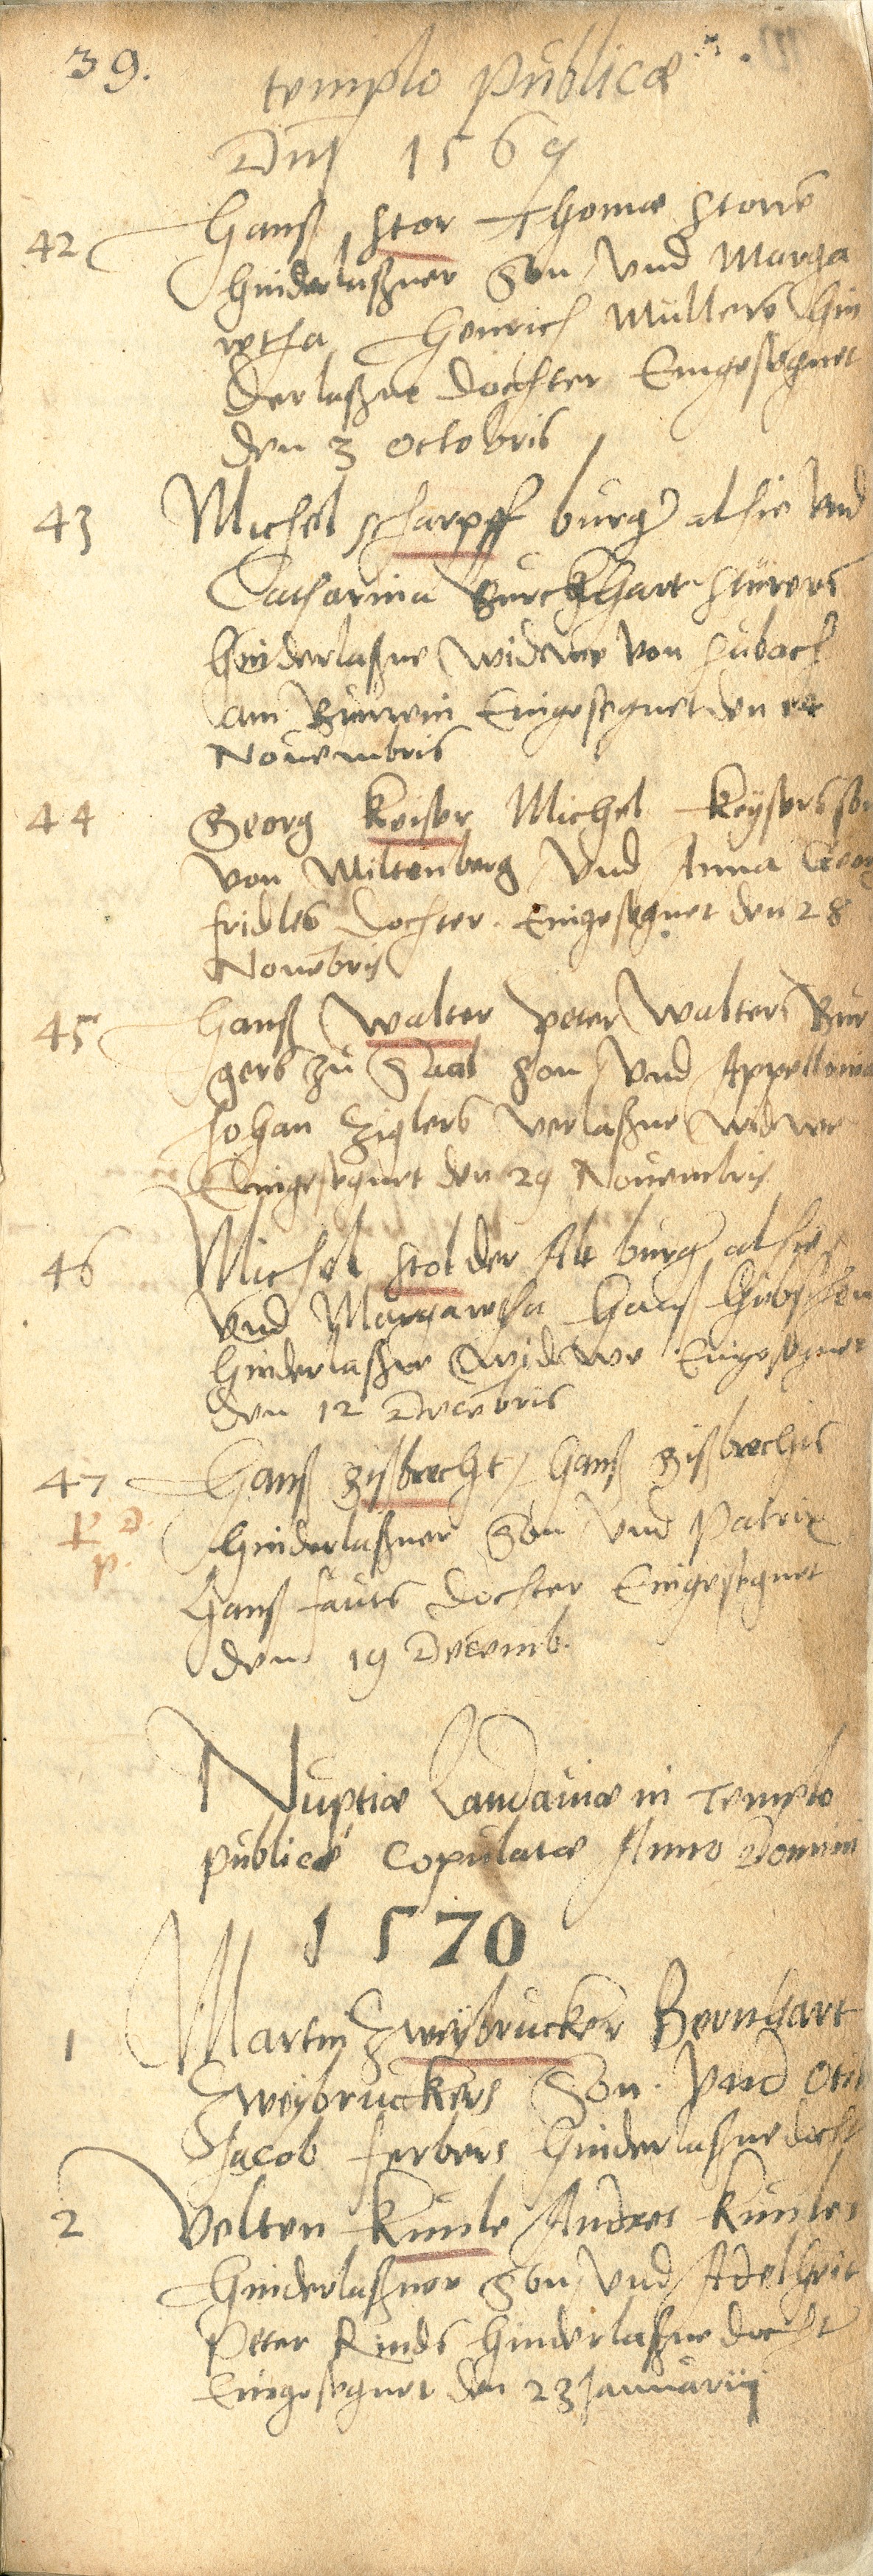 39.
templo publicæ
Dnj 1569
42 Hanß Stor Thomæ Storrē
hinderlaßner Son und Marga
retha Heinrich Müllers hin
derlaßne dochter Eingesegnet
den 3 Octobris
43 Michel scharpff burger alhie und
Catharina Burckhart stürers
hinderlaßne widwe von Subach
am eingesegnet den
Novembris
44 Georg Keiser Michel Keysers son
von Miltenberg und Anna Georg
fridles dochter Eingesegnet den 28
Novēbris
45 Hanß Walter Peter Walters Bur
gers zu Saal Son und Appellonia
Johan Ziglers verlaßne widwe
Eingesegnet den 29 Novembris
46 Michel Stol der Alt burger alhie
und Margaretha Hanß
hinderlaßne widwe Eingesegnet
den 12 Decēbris
47 Hanß Gißbrecht, Hanß Gißbrechts
hinderlaßner Son und Patrix
P. D.
p.
Hanß fauts dochter Eingesegnet
den 19 Decemb.
Nuptiæ Landaviæ in Templo
publicæ Copulatæ Anno Domini
1570
1 Martin Zweybrucker Bernhart
Zweybruckers Son. und Otil
Jacob ferbers hinderlaßne docht
2 Velten Kunle Andres Kunles
hinderlaßner Son und Adelheit
Peter Rinds hinderlaßne docht
Eingesegnet den 23 Januarij